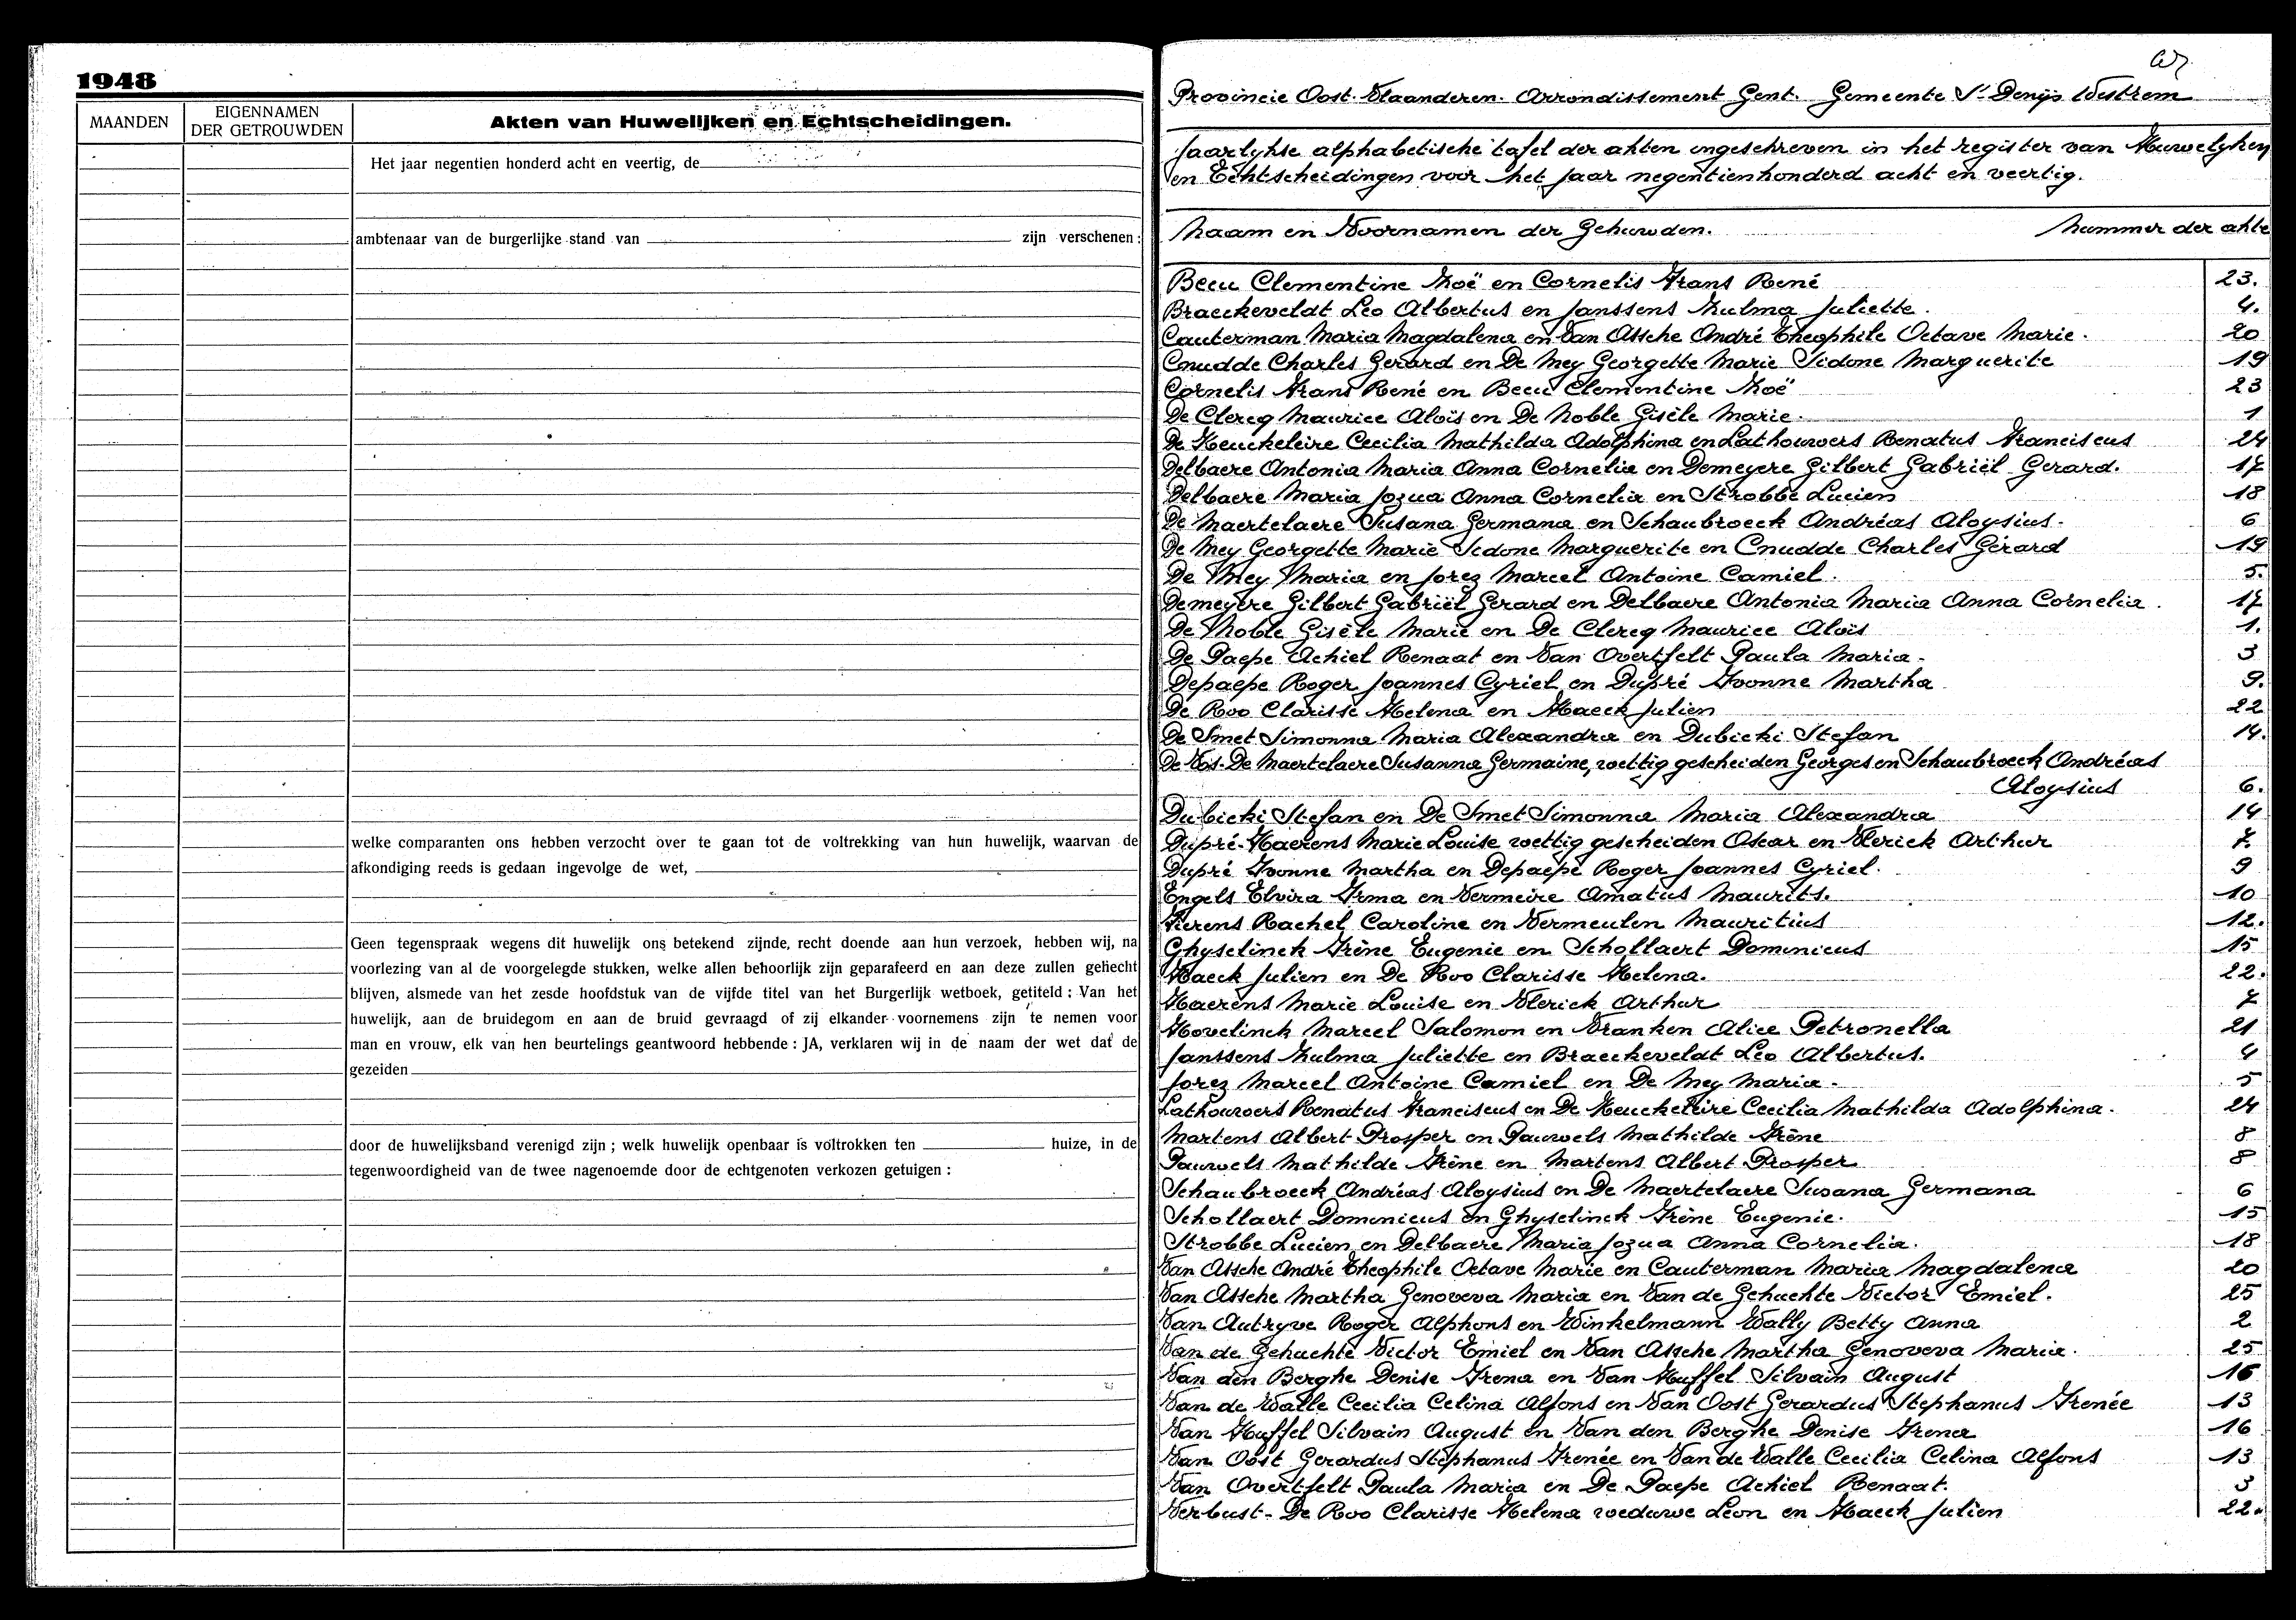 1948
MAANDEN
EIGENNAMEN
DER GETROUWDEN
Akten van Huwelijken en Echtscheidingen.
Het jaar negentien honderd acht en veertig, de
ambtenaar van de burgerlijke stand van zijn verschenen :
welke comparanten ons hebben verzocht over te gaan tot de voltrekking van hun huwelijk, waarvan de
afkondiging reeds is gedaan ingevolge de wet,
Geen tegenspraak wegens dit huwelijk ons betekend zijnde, recht doende aan hun verzoek, hebben wij, na
voorlezing van al de voorgelegde stukken, welke allen behoorlijk zijn geparafeerd en aan deze zullen gehecht
blijven, alsmede van het zesde hoofdstuk van de vijfde titel van het Burgerlijk wetboek, getiteld : Van het
huwelijk, aan de bruidegom en aan de bruid gevraagd of zij elkander voornemens zijn te nemen voor
man en vrouw, elk van hen beurtelings geantwoord hebbende : JA, verklaren wij in de naam der wet dat de
gezeiden
door de huwelijksband verenigd zijn ; welk huwelijk openbaar is voltrokken ten huize, in de
tegenwoordigheid van de twee nagenoemde door de echtgenoten verkozen getuigen :
Provincie Oost-Vlaanderen. Arrondissement Gent. Gemeente St Denijs Westrem
Jaarlykse alphabetische tafel der akten ingeschreven in het register van Huwelyken
en Echtscheidingen voor het jaar negentienhonderd acht en veertig.
Naam en Voornamen der Gehuwden. Nummer der akte
Beeu Clementine Zoë en Cornelis Frans René 23.
Braeckeveldt Leo Albertus en Janssens Zulma Juliette. 4.
Cauterman Maria Magdalena en Van Assche André Theophile Octave Marie. 20
Cnudde Charles Gerard en De Mey Georgette Marie Sidone Marguerite 19
Cornelis Frans René en Beeu Clementine Zoë 23
De Clercq Maurice Aloïs en De Noble Gisèle Marie. 1
De Keuckeleire Cecilia Mathilda Adolphina en Lathouwers Renatus Franciscus 24
Delbaere Antonia Maria Anna Cornelia en Demeyere Gilbert Gabriël Gerard. 17
Delbaere Maria Jozua Anna Cornelia en Strobbe Lucien 18
De Maertelaere Susana Germana en Schaubroeck Andréas Aloysius. 6
De Mey Georgette Marie Sidone Marguerite en Cnudde Charles Gérard 19
De Mey Maria en Jorez Marcel Antoine Camiel. 5.
Demeyere Gilbert Gabriël Gerard en Delbaere Antonia Maria Anna Cornelia. 17
De Noble Gisèle Marie en De Clercq Maurice Aloïs 1.
De Paepe Achiel Renaat en Van Overtfelt Paula Maria. 3
Depaepe Roger Joannes Cyriel en Dupré Yvonne Martha 9.
De Roo Clarisse Helena en Haeck Julien 22
De Smet Simonna Maria Alexandra en Dubicki Stefan 14.
De Vos-De Maertelaere Susanna Germaine, wettig gescheiden Georges en Schaubroeck Andréas
Aloysius 6.
Dubicki Stefan en De Smet Simonna Maria Alexandra 14
Dupré-Haerens Marie Louise wettig gescheiden Oscar en Vlerick Arthur 7.
Dupré Yvonne Martha en Depaepe Roger Joannes Cyriel. 9
Engels Elvira Irma en Vermeire Amatus Maurits. 10
Fierens Rachel Caroline en Vermeulen Mauritius 12.
Ghyselinck Irène Eugenie en Schollaert Dominicus 15
Haeck Julien en De Roo Clarisse Helena. 22.
Haerens Marie Louise en Vlerick Arthur 7
Hovelinck Marcel Salomon en Vranken Alice Petronella 21
Janssens Zulma Juliette en Braeckeveldt Leo Albertus. 4
Jorez Marcel Antoine Camiel en De Mey Maria. 5
Lathouwers Renatus Franciscus en De Keuckeleire Cecilia Mathilda Adolphina. 24
Martens Albert Prosper en Pauwels Mathilde Irène 8
Pauwels Mathilde Irène en Martens Albert Prosper 8
Schaubroeck Andréas Aloysius en De Maertelaere Susana Germana 6
Schollaert Dominicus en Ghyselinck Irène Eugenie. 15
Strobbe Lucien en Delbaere Maria Jozua Anna Cornelia. 18
Van Assche André Theophile Octave Marie en Cauterman Maria Magdalena 20
Van Assche Martha Genoveva Maria en Van de Gehuchte Victor Emiel. 25
Van Autryve Roger Alphons en Winkelmann Wally Betty Anna 2
Van de Gehuchte Victor Emiel en Van Assche Martha Genoveva Maria. 25
Van den Berghe Denise Irena en Van Huffel Silvain August 16
Van de Walle Cecilia Celina Alfons en Van Oost Gerardus Stephanus Irenée 13
Van Huffel Silvain August en Van den Berghe Denise Irena 16
Van Oost Gerardus Stephanus Irenée en Van de Walle Cecilia Celina Alfons 13
Van Overtfelt Paula Maria en De Paepe Achiel Renaat. 3
Verbust-De Roo Clarisse Helena weduwe Leon en Haeck Julien 22.